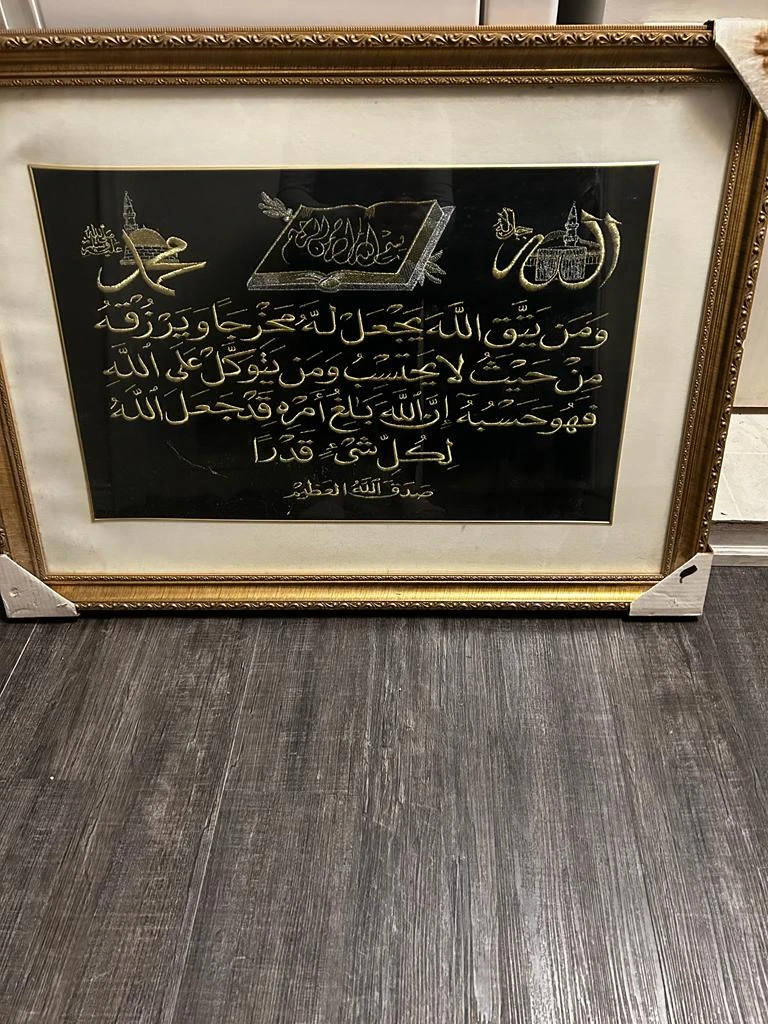 الله جل جلاله
بسم الله الرحمن الرحيم
محمد صلى الله عليه وسلم
وَمَن يَتَّقِ اللَّهَ يَجْعَل لَّهُ مَخْرَجًا وَيَرْزُقْهُ
مِنْ حَيْثُ لَا يَحْتَسِبُ وَمَن يَتَوَكَّلْ عَلَى اللَّهِ
فَهُوَ حَسْبُهُ إِنَّ اللَّهَ بَالِغُ أَمْرِهِ قَدْ جَعَلَ اللَّهُ
لِكُلِّ شَيْءٍ قَدْرًا
صَدَقَ اللَّهُ الْعَظِيمُ